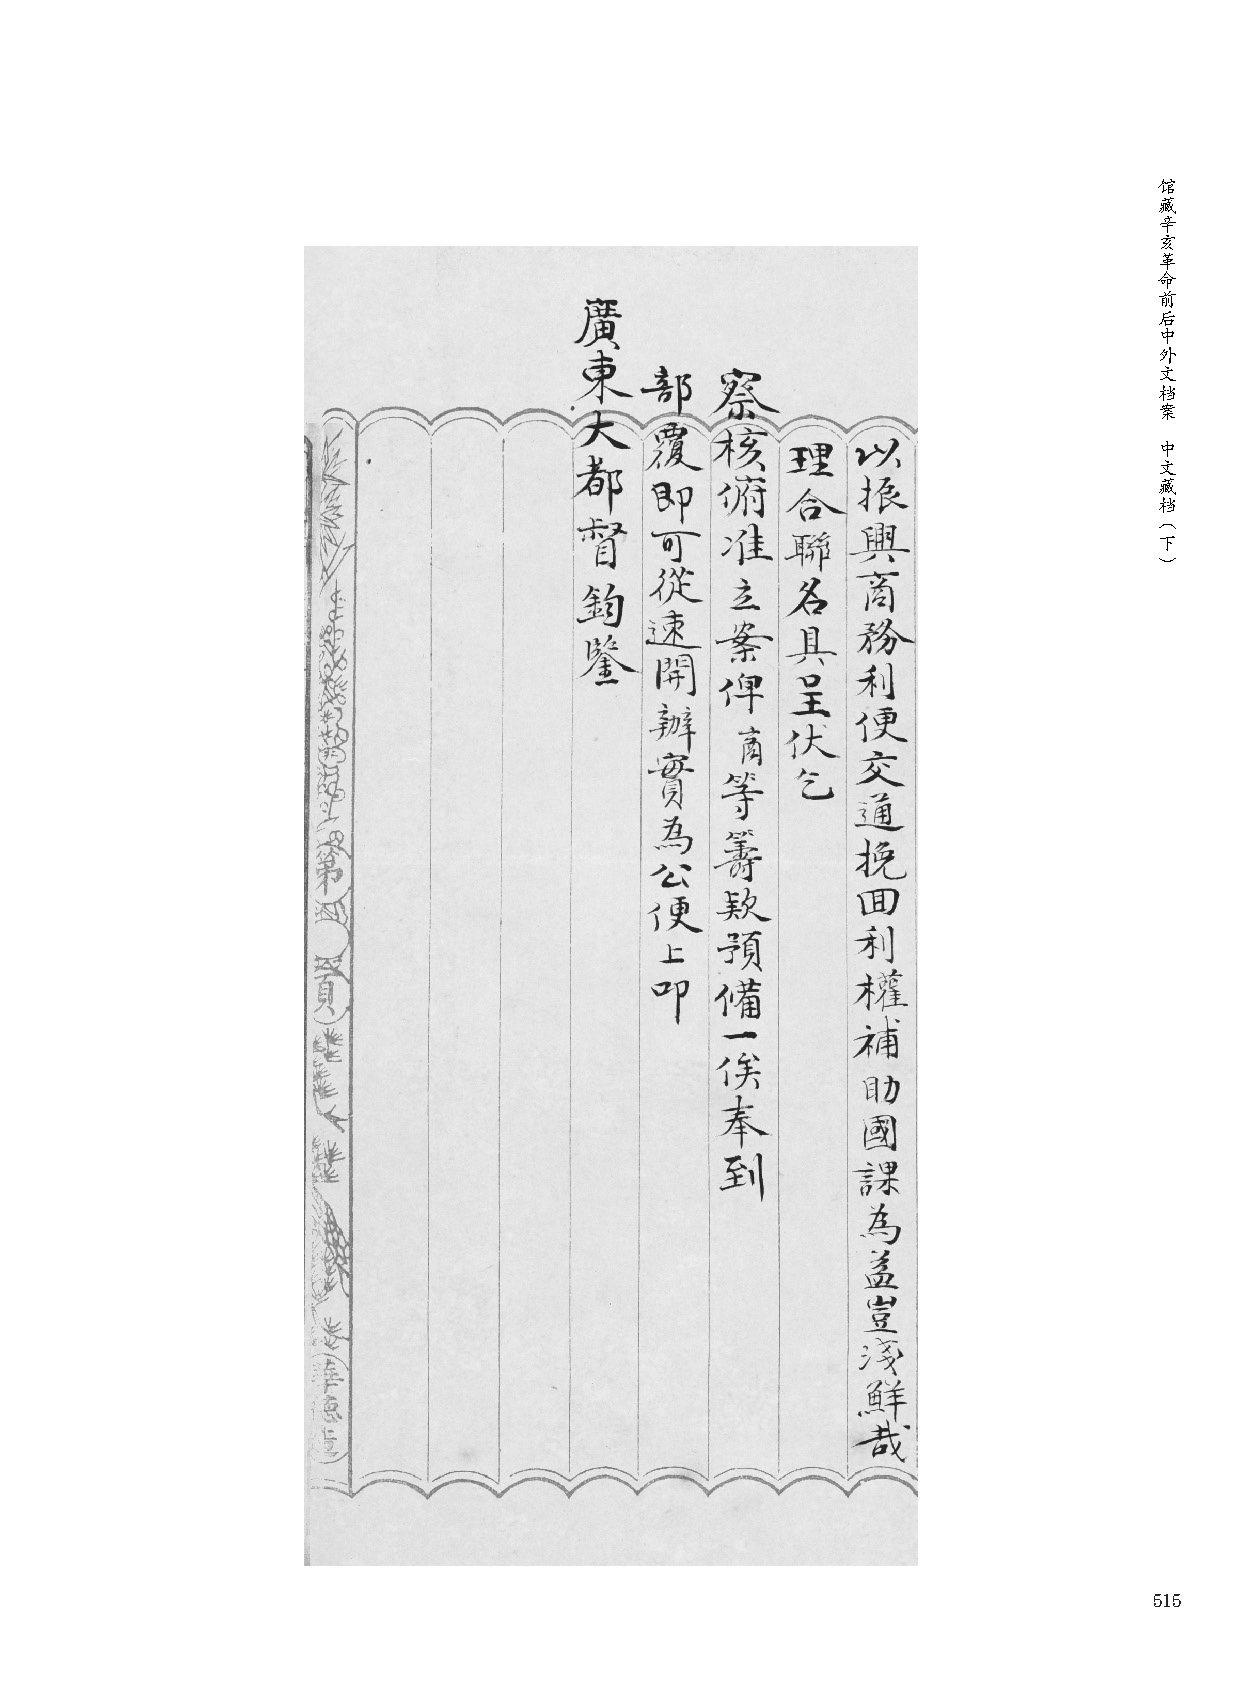 馆藏辛亥革命前后中外文档案 中文藏档（下）
以振興商務利便交通挽囬利權補助國課為益豈淺鮮哉
理合聯名具呈伏乞
察核俯准立案俾商等籌欵預備一俟奉到
部覆即可從速開辦實為公便上叩
廣東大都督鈞鑒
第 頁
華德堂
515